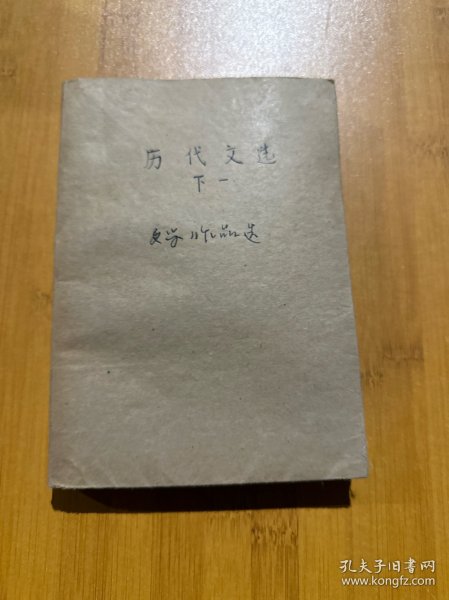 历代文选
下一
文学作品选
孔夫子旧书网
www.kongfz.com